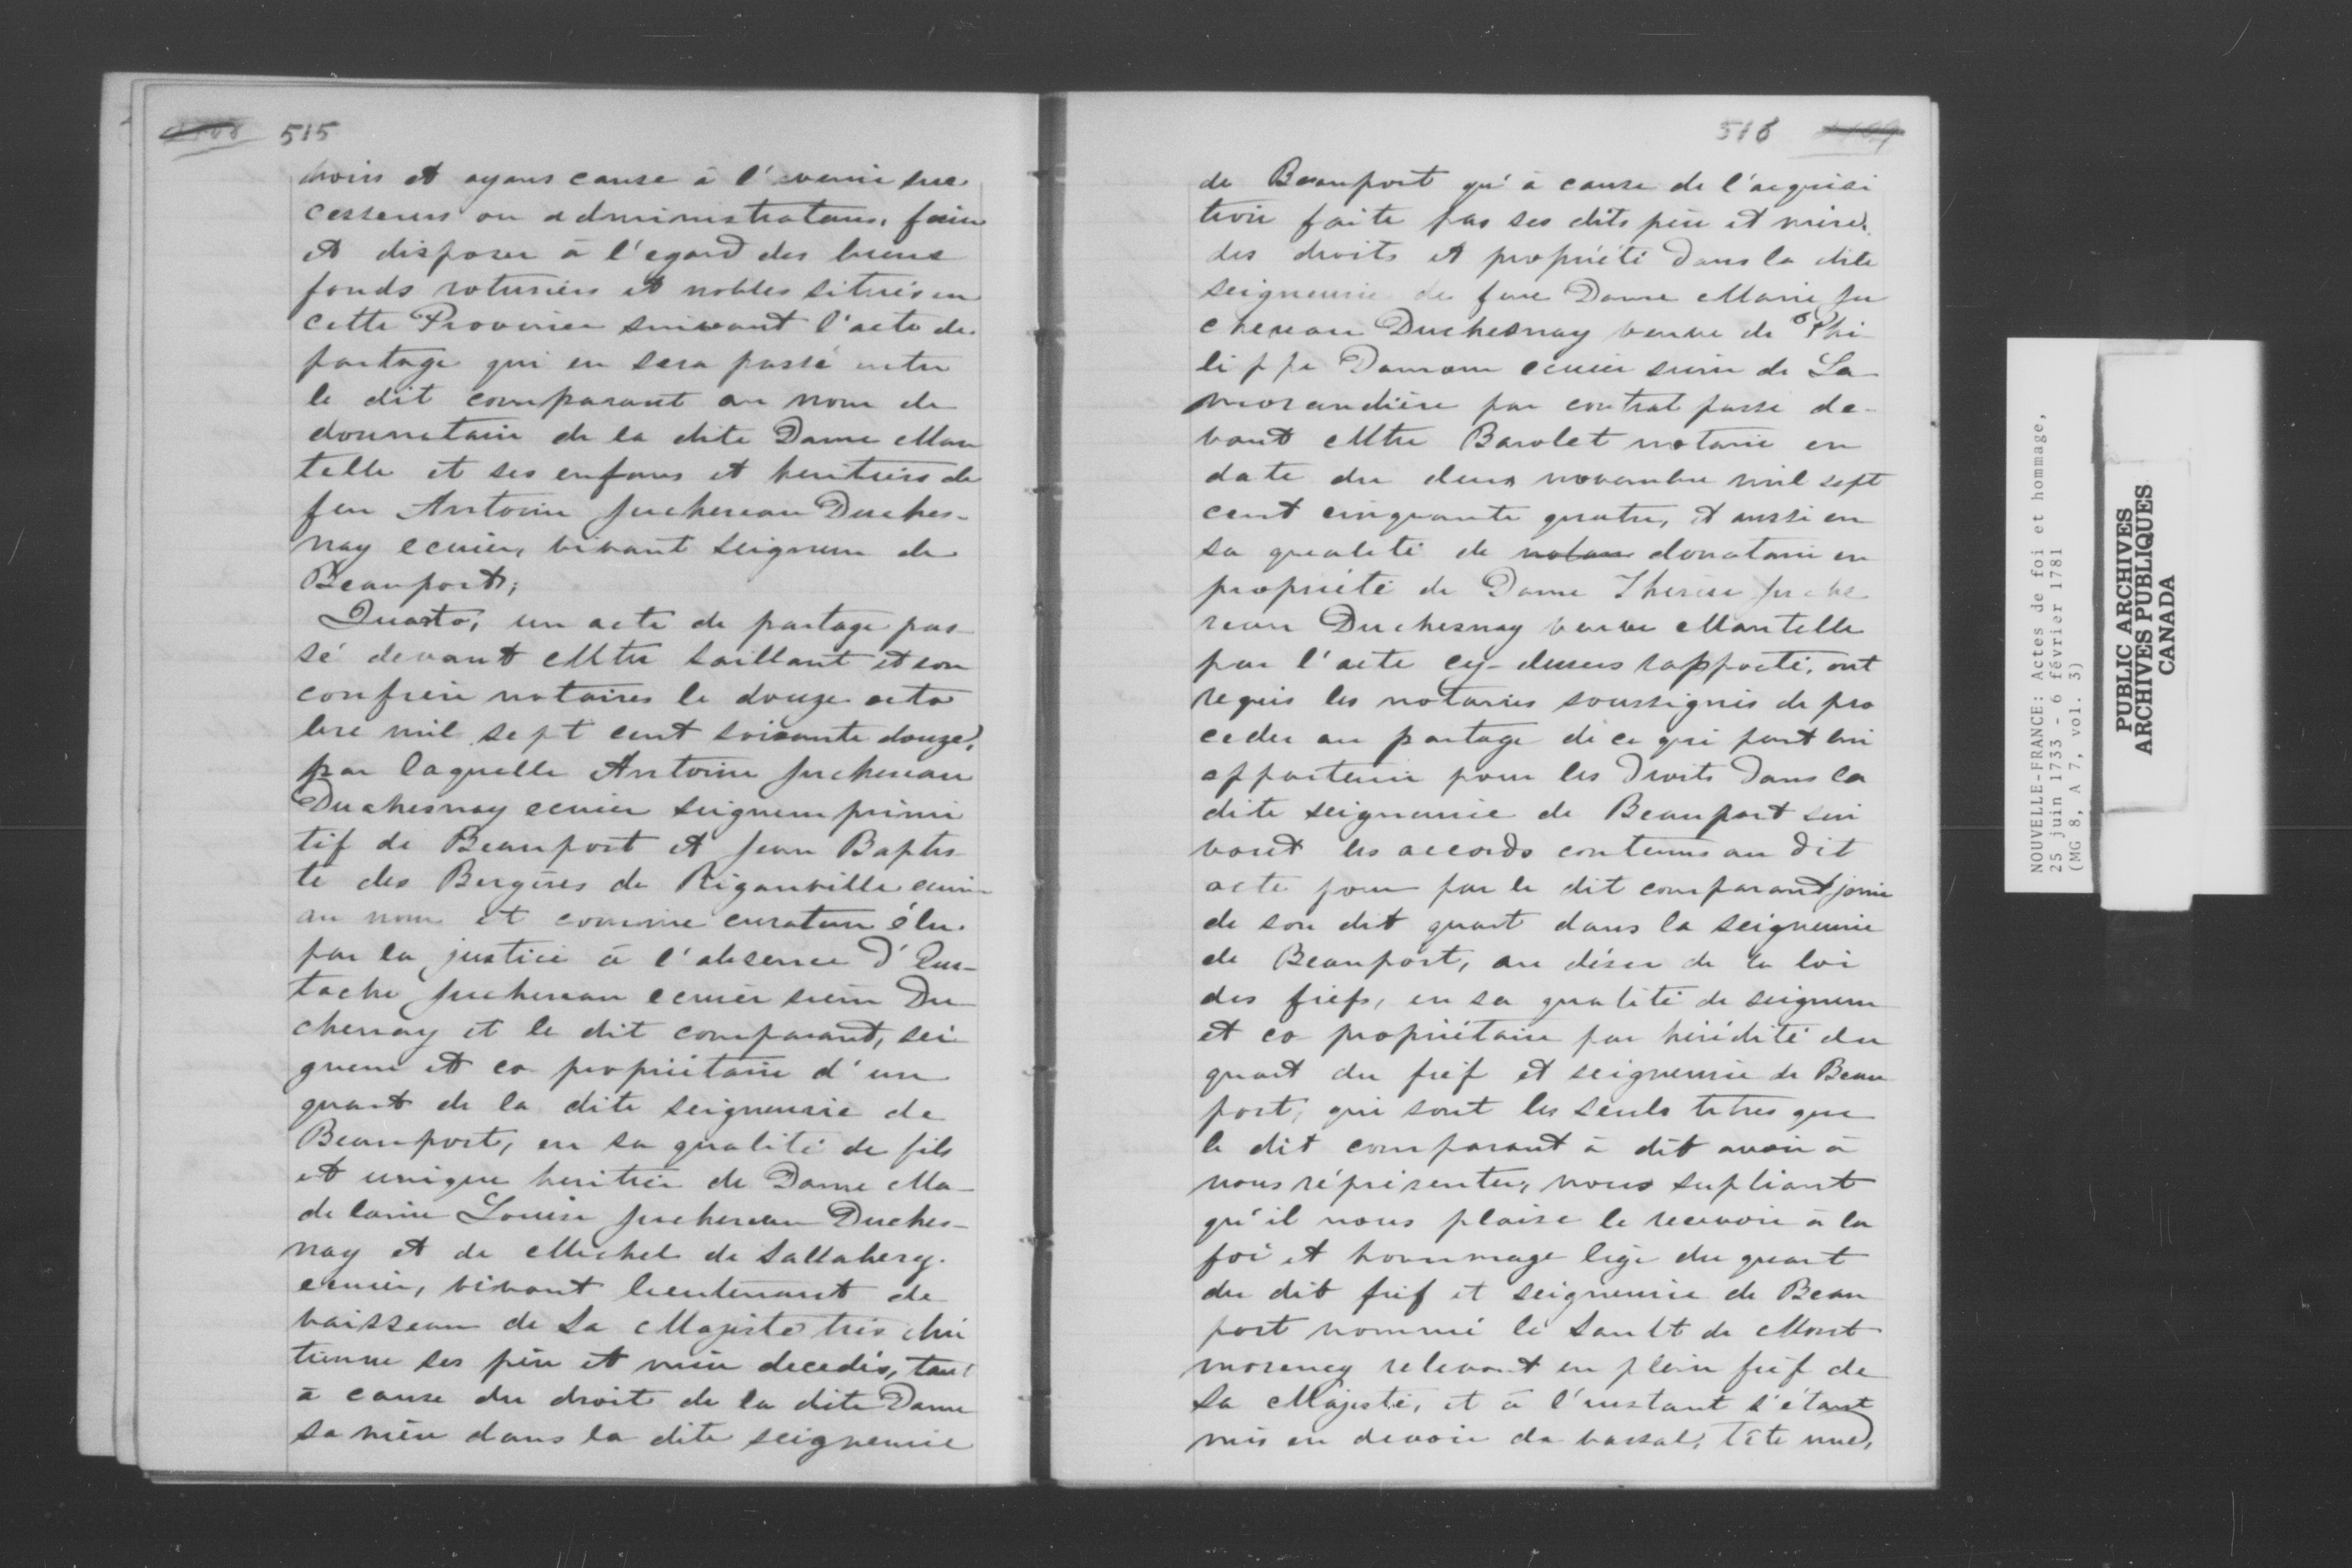 515
hoirs et ayans cause à l'avenir suc
cesseurs ou administrateurs, faire
et disposer à l'egard des biens
fonds roturiers et nobles situés en
cette Province suivant l'acte de
partage qui en sera passé entre
le dit comparant au nom de
donnataire de la dite Dame Mon
telle et ses enfans et heritiers de
feu Antoine Juchereau Duches-
nay ecuier, vivant seigneur de
Beauport;
Quarto, un acte de partage pas
sé devant Mtre Saillant et son
confrere notaires le douze octo
bre mil sept cent soixante douze,
par laquelle Antoine Juchereau
Duchesnay ecuier seigneur primi
tif de Beauport et Jean Baptis
te des Bergères de Rigauville ecuier
au nom et comme curateur élu
par la justice à l'absence d'Eus-
tache Juchereau ecuier sieur Du
chesnay et le dit comparant, sei
gneur et co propriétaire d'un
quart de la dite seigneurie de
Beauport, en sa qualité de fils
et unique heritier de Dame Ma-
delaine Louise Juchereau Duches-
nay et de Michel de Sallabery
ecuier, vivant lieutenant de
vaisseau de Sa Majeste très chré
tienne ses père et mère decedés, tant
à cause du droit de la dite Dame
sa mère dans la dite seigneurie
516
de Beauport qu'à cause de l'acquisi
tion faite par ses dits père et mère
des droits et propriété dans la dite
seigneurie de feue Dame Marie Ju
chereau Duchesnay veuve de Phi
lippe Damour ecuier sieur de La
morandière par contrat passé de-
vant Mtre Barolet notaire en
date du deux novembre mil sept
cent cinquante quatre, et aussi en
sa qualité de donataire en
propriété de Dame Therese Juche
reau Duchesnay veuve Montelle
par l'acte cy-dessus rapporté, ont
requis les notaires soussignés de pro
ceder au partage de ce qui peut lui
appartenir pour les Droits Dans la
dite seigneurie de Beauport sui
vant les accords contenus au dit
acte pour par le dit comparant jouir
de son dit quart dans la seigneurie
de Beauport, au désir de la loi
des fiefs, en sa qualité de seigneur
et co propriétaire par hérédité du
quart du fief et seigneurie de Beau
port, qui sont les seuls titres que
le dit comparant à dit avoir à
nous réprésenter, nous supliant
qu'il nous plaise le recevoir à la
foi et hommage lige du quart
du dit fief et seigneurie de Beau
port nommé le Sault de Mont
morency relevant en plein fief de
Sa Majesté, et à l'instant s'étant
mis en devoir de vassal, tête nue,
NOUVELLE-FRANCE: Actes de foi et hommage,
25 juin 1733 - 6 février 1781
(MG 8, A 7, vol. 3)
PUBLIC ARCHIVES
ARCHIVES PUBLIQUES
CANADA